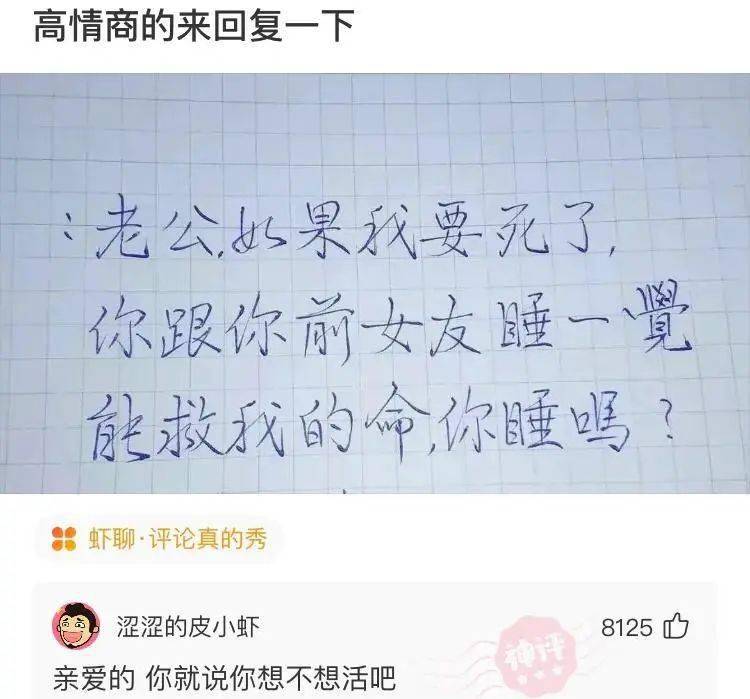 高情商的来回复一下
:老公,如果我要死了,
你跟你前女友睡一覺
能救我的命,你睡嗎?
虾聊·评论真的秀
涩涩的皮小虾
8125
神评
亲爱的 你就说你想不想活吧